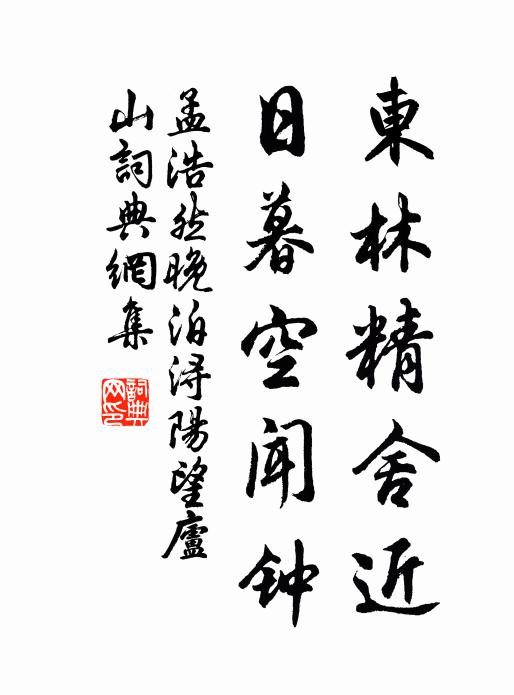 東林精舍近
日暮空闻钟
孟浩然晚泊浔陽望廬
山詞典網集
詞典
网印